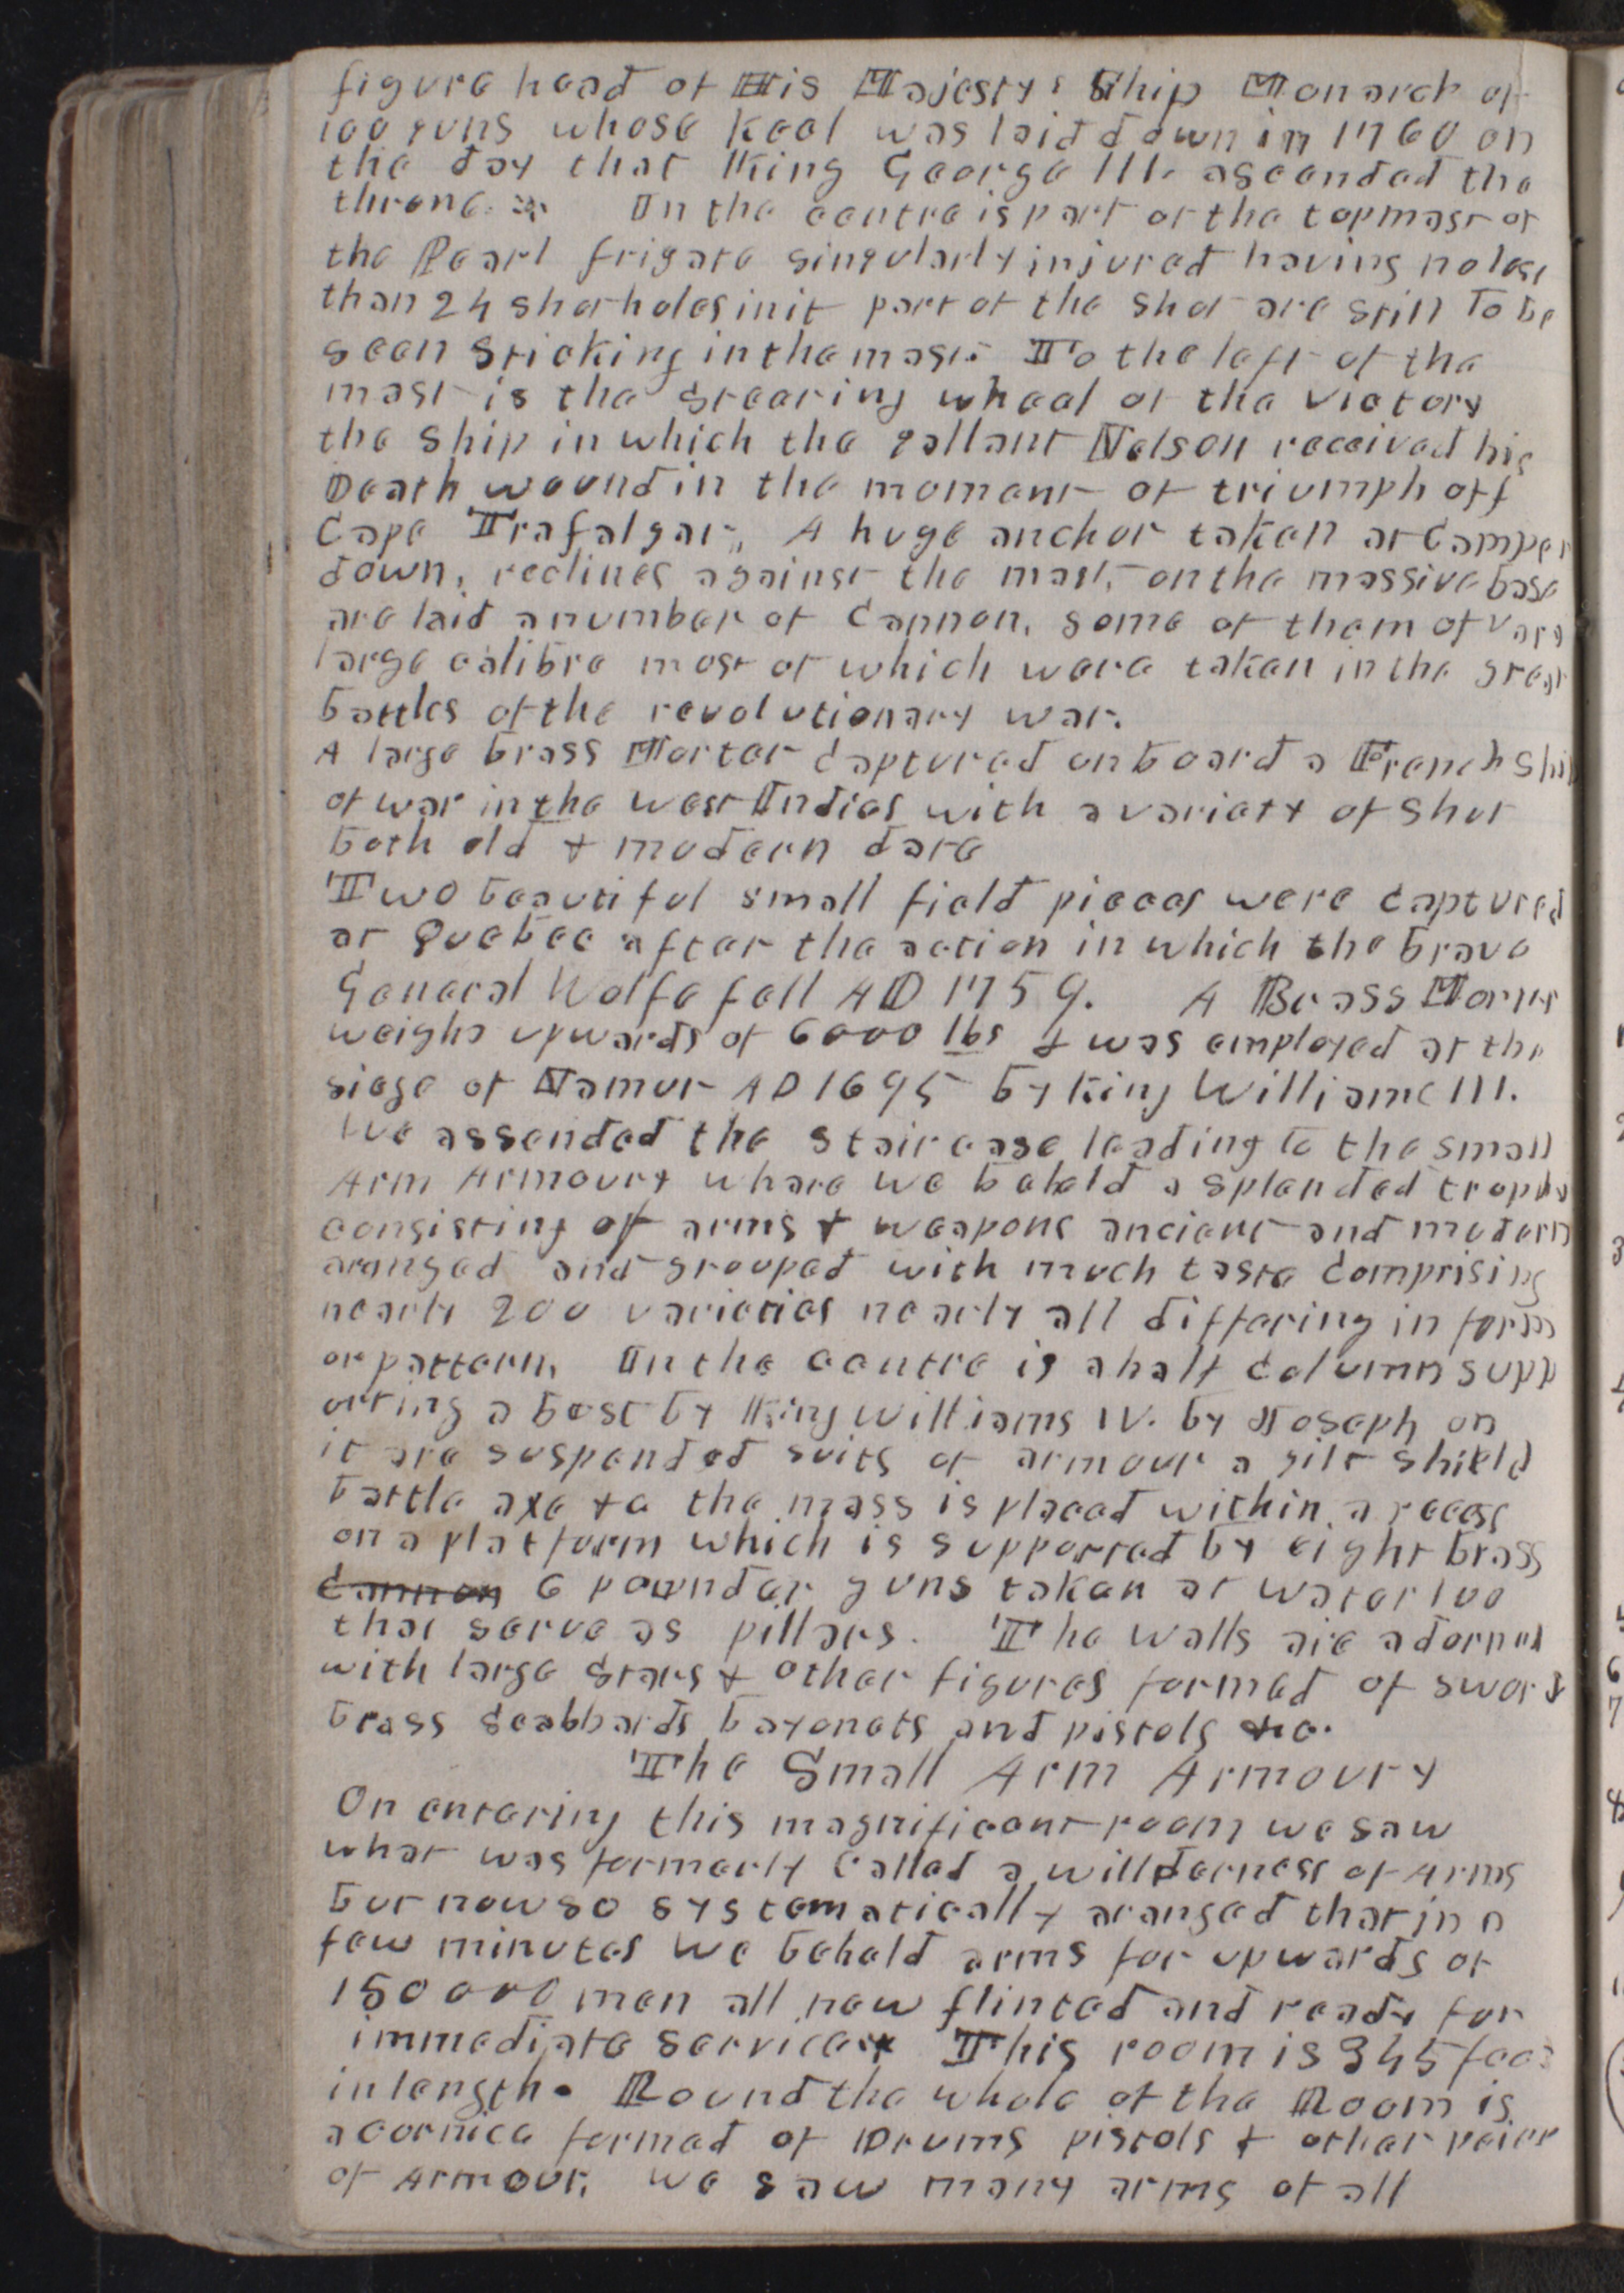 figure head of His Majestys Ship Monarch of
100 guns whose keel was laid down in 1760 on
the day that King George III. ascended the
throne. In the centre is part of the topmast of
the Pearl frigate singularly injured having no less
than 24 shot holes in it part of the shot are still to be
seen sticking in the mast. To the left of the
mast is the steering wheel of the Victory
the ship in which the gallant Nelson received his
Death wound in the moment of triumph off
Cape Trafalgar, A huge anchor taken at Camper
down, reclines against the mast, on the massive base
are laid a number of Cannon, some of them of very
large calibre most of which were taken in the great
battles of the revolutionary war.
A large brass Mortar Captured on board a French Ship
of war in the west Indies with a variety of shot
both old & modern date
Two beautiful small field pieces were captured
at Quebec after the action in which the brave
General Wolfe fell AD 1759. A Brass
weighs upwards of 6000 lbs & was employed at the
siege of Namur AD 1695 by King Williams III.
We assended the staircase leading to the small
Arm Armoury where we beheld a splended trophy
consisting of arms & weapons ancient and modern
aranged and grouped with much taste Comprising
nearly 200 varieties nearly all differing in form
or pattern, In the centre is a half Column supp
orting a bost by King Williams IV. by Joseph on
it are suspended suits of armour a gilt shield
battle axe &c the mass is placed within a recess
on a platform which is supported by eight brass
Cannon 6 pownder guns taken at waterloo
that serve as pillars. The walls are adorned
with large stars & other figures formed of sword
brass scabbards bayonets and pistols &c.
The Small Arm Armoury
On entering this magnificent room we saw
what was formerly called a willderness of Arms
but now so systematically aranged that in a
few minutes we beheld arms for upwards of
150000 men all new flinted and ready for
immediate service This room is 345 feet
in length. Round the whole of the Room is
a cornice formed of Drums pistols & other
of Armour, we saw many arms of all